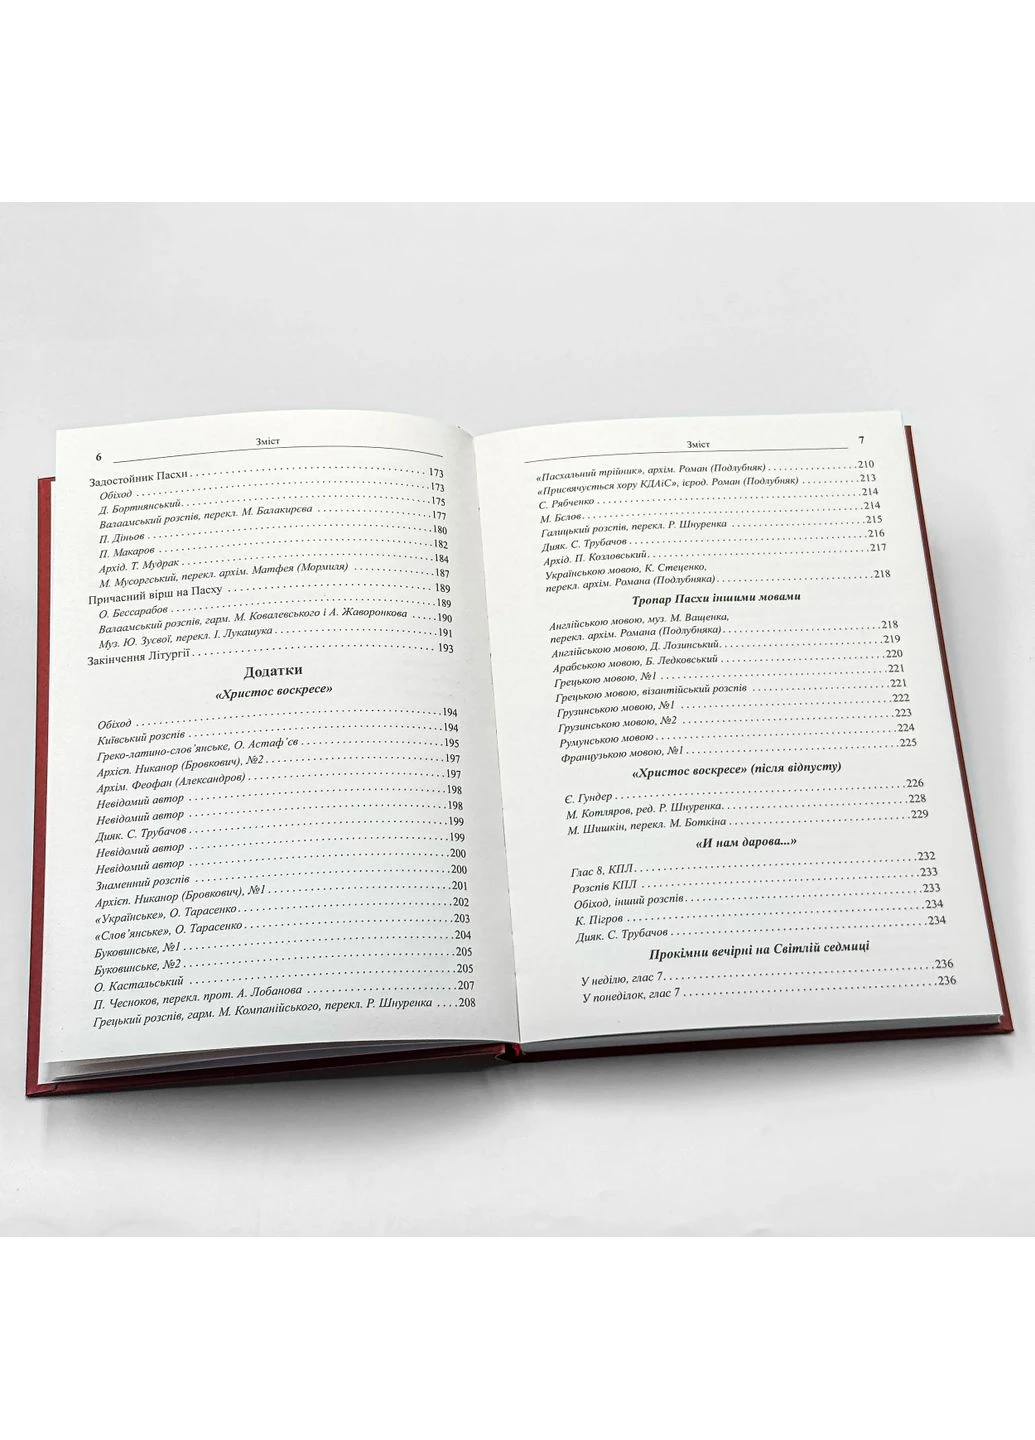 6
Зміст
Задостойник Пасхи . . . . . . . . . . . . . . . . . . . . 173
Обіход . . . . . . . . . . . . . . . . . . . . 173
Д. Бортнянський . . . . . . . . . . . . . . . . . . . . 175
Валаамський розспів, перекл. М. Балакирєва . . . . . . . . . . 177
П. Діньов . . . . . . . . . . . . . . . . . . . . 180
П. Макаров . . . . . . . . . . . . . . . . . . . . 182
Архід. Т. Мудрак . . . . . . . . . . . . . . . . . . . . 184
М. Мусоргський, перекл. архім. Матфея (Мормиля) . . . . . . . . 187
Причасний вірш на Пасху . . . . . . . . . . . . . . . . . . . . 189
О. Бессарабов . . . . . . . . . . . . . . . . . . . . 189
Валаамський розспів, гарм. М. Ковалевського і А. Жаворонкова . . . . 190
Муз. Ю. Зусвої, перекл. І. Лукащука . . . . . . . . . . . . . . . 191
Закінчення Літургії . . . . . . . . . . . . . . . . . . . . 193
Додатки
«Христос воскресе»
Обіход . . . . . . . . . . . . . . . . . . . . 194
Київський розспів . . . . . . . . . . . . . . . . . . . . 194
Греко-латино-слов’янське, О. Астаф’єв . . . . . . . . . . . . . . . 195
Архієп. Никанор (Бровкович), №2 . . . . . . . . . . . . . . . 197
Архім. Феофан (Александров) . . . . . . . . . . . . . . . 197
Невідомий автор . . . . . . . . . . . . . . . . . . . . 198
Невідомий автор . . . . . . . . . . . . . . . . . . . . 198
Дияк. С. Трубачов . . . . . . . . . . . . . . . . . . . . 199
Невідомий автор . . . . . . . . . . . . . . . . . . . . 199
Невідомий автор . . . . . . . . . . . . . . . . . . . . 200
Знаменний розспів . . . . . . . . . . . . . . . . . . . . 200
Архієп. Никанор (Бровкович), №1 . . . . . . . . . . . . . . . 201
«Українське», О. Тарасенко . . . . . . . . . . . . . . . . . . . . 202
«Слов’янське», О. Тарасенко . . . . . . . . . . . . . . . . . . . . 203
Буковинське, №1 . . . . . . . . . . . . . . . . . . . . 204
Буковинське, №2 . . . . . . . . . . . . . . . . . . . . 205
О. Кастальський . . . . . . . . . . . . . . . . . . . . 205
П. Чесноков, перекл. прот. А. Лобанова . . . . . . . . . . . . . . . 207
Грецький розспів, гарм. М. Компанійського, перекл. Р. Шнуренка . . . . 208
Зміст
7
«Пасхальний трійник», архім. Роман (Подлубняк) . . . . . . . . . . 210
«Присвячується хору КДАіС», ієрод. Роман (Подлубняк) . . . . . . . 213
С. Рябченко . . . . . . . . . . . . . . . . . . . . 214
М. Бєлов . . . . . . . . . . . . . . . . . . . . 214
Галицький розспів, перекл. Р. Шнуренка . . . . . . . . . . . . . . . 215
Дияк. С. Трубачов . . . . . . . . . . . . . . . . . . . . 216
Архід. П. Козловський . . . . . . . . . . . . . . . . . . . . 217
Українською мовою, К. Стеценко,
перекл. архім. Романа (Подлубняка) . . . . . . . . . . . . . . . 218
Тропар Пасхи іншими мовами
Англійською мовою, муз. М. Ващенка,
перекл. архім. Романа (Подлубняка) . . . . . . . . . . . . . . . 218
Англійською мовою, Д. Лозинський . . . . . . . . . . . . . . . 219
Арабською мовою, Б. Ледковський . . . . . . . . . . . . . . . 220
Грецькою мовою, №1 . . . . . . . . . . . . . . . . . . . . 221
Грецькою мовою, візантійський розспів . . . . . . . . . . . . . . . 221
Грузинською мовою, №1 . . . . . . . . . . . . . . . . . . . . 222
Грузинською мовою, №2 . . . . . . . . . . . . . . . . . . . . 223
Румунською мовою . . . . . . . . . . . . . . . . . . . . 224
Французькою мовою, №1 . . . . . . . . . . . . . . . . . . . . 225
«Христос воскресе» (після відпусту)
Є. Гундер . . . . . . . . . . . . . . . . . . . . 226
М. Котляров, ред. Р. Шнуренка . . . . . . . . . . . . . . . . . . . . 228
М. Шишкін, перекл. М. Боткіна . . . . . . . . . . . . . . . . . . . . 229
«И нам дарова...»
Глас 8, КПЛ . . . . . . . . . . . . . . . . . . . . 232
Розспів КПЛ . . . . . . . . . . . . . . . . . . . . 233
Обіход, інший розспів . . . . . . . . . . . . . . . . . . . . 233
К. Пігров . . . . . . . . . . . . . . . . . . . . 234
Дияк. С. Трубачов . . . . . . . . . . . . . . . . . . . . 234
Прокімни вечірні на Світлій седмиці
У неділю, глас 7 . . . . . . . . . . . . . . . . . . . . 236
У понеділок, глас 7 . . . . . . . . . . . . . . . . . . . . 236